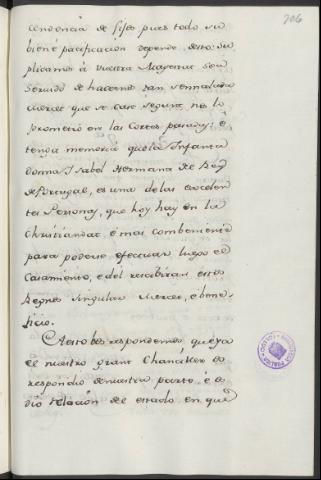 206
cendencia de fijos pues todo su
bien é pacificacion depende desto: su
plicamos á vuestra Magestat sea
servido de hacernos tan sennalada
mercet que se case segunt nos lo
prometió en las Cortes pasadas: é
tenga memoria que la Infanta
donna Isabel Hermana de Rey
de Portugal, es una de las excelen
tes Personas, que hoy hay en la
Christiandat, é mas combeniente
para poderse efectuar luego el
Casamiento, é del rescibiran estos
Regnos singular mercet, é bene-
ficio.
A esto bos respondemos que ya
el nuestro grant Chanciller os
respondió de nuestra parte, é os
dió relacion del estado en que